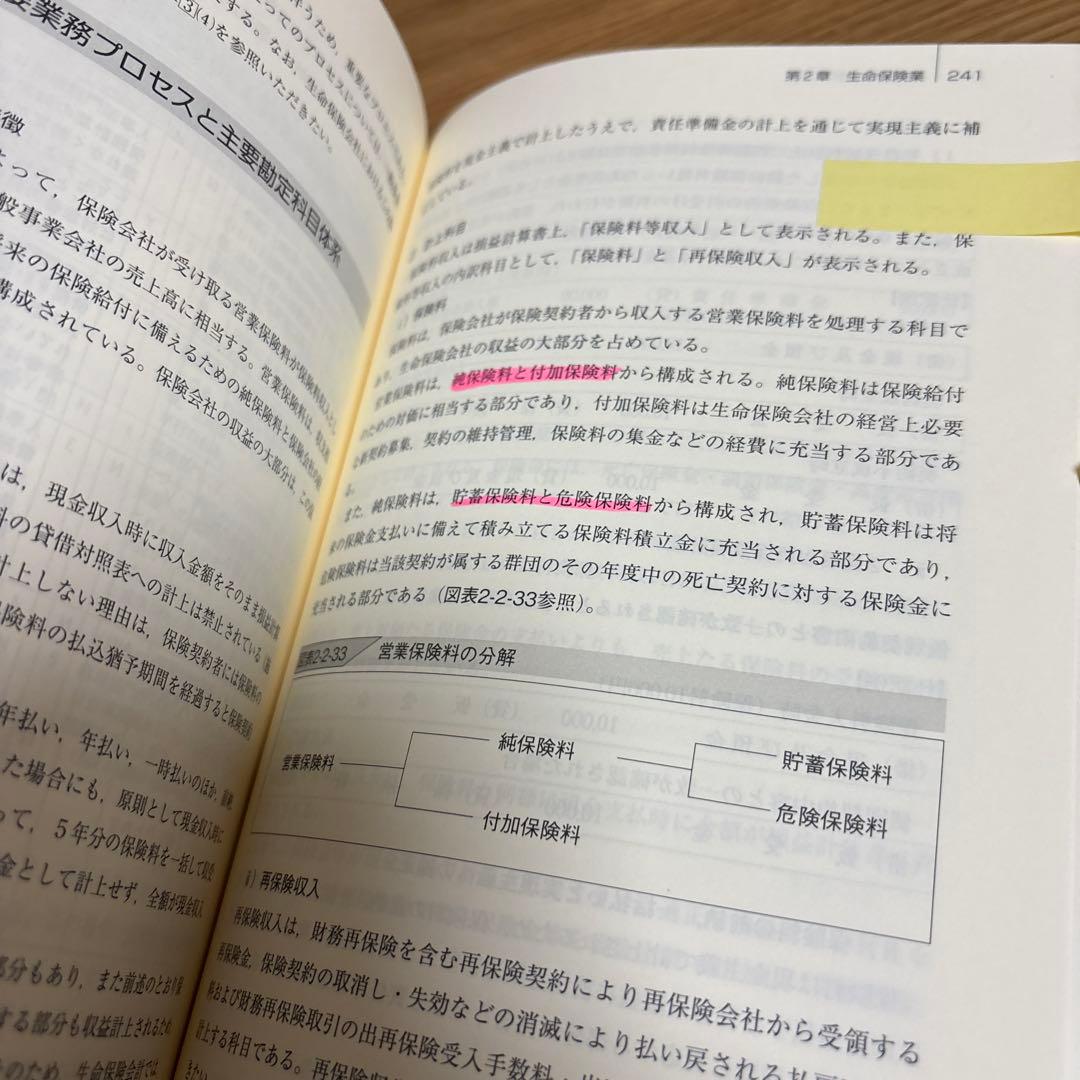 [3](4)を参照いただきたい。
要業務プロセスと主要勘定科目体系
徴
よって，保険会社が受け取る営業保険料が保険料収入と
般事業会社の売上高に相当する。営業保険料は，
将来の保険給付に備えるための純保険料と保険会社の
構成されている。保険会社の収益の大部分は，この
は，現金収入時に収入金額をそのまま損益計算
料の貸借対照表への計上は禁止されている
計上しない理由は，保険契約者には保険料の
保険料の払込猶予期間を経過すると保険契約
年払い，年払い，一時払いのほか，
た場合にも，原則として現金収入時に
って，5年分の保険料を一括して収受
金として計上せず，全額が現金収入
部分もあり，また前述のとおり保
する部分も収益計上されるため
のため，生命保険会計では
第2章 生命保険業 241
現金主義で計上したうえで，責任準備金の計上を通じて実現主義に補
ている。
計上科目
保険料収入は損益計算書上，「保険料等収入」として表示される。また，保
険料等収入の内訳科目として，「保険料」と「再保険収入」が表示される。
ⅰ）保険料
保険料は，保険会社が保険契約者から収入する営業保険料を処理する科目で
あり，生命保険会社の収益の大部分を占めている。
営業保険料は，純保険料と付加保険料から構成される。純保険料は保険給付
のための対価に相当する部分であり，付加保険料は生命保険会社の経営上必要
な新契約募集，契約の維持管理，保険料の集金などの経費に充当する部分であ
る。
また，純保険料は，貯蓄保険料と危険保険料から構成され，貯蓄保険料は将
来の保険金支払いに備えて積み立てる保険料積立金に充当される部分であり，
危険保険料は当該契約が属する群団のその年度中の死亡契約に対する保険金に
充当される部分である（図表2-2-33参照）。
図表2-2-33 営業保険料の分解
営業保険料
純保険料
付加保険料
貯蓄保険料
危険保険料
ⅱ）再保険収入
再保険収入は，財務再保険を含む再保険契約により再保険会社から受領する
再保険金，保険契約の取消し・失効などの消滅により払い戻される
料および財務再保険取引の出再保険受入手数料・
計上する科目である。再保険収